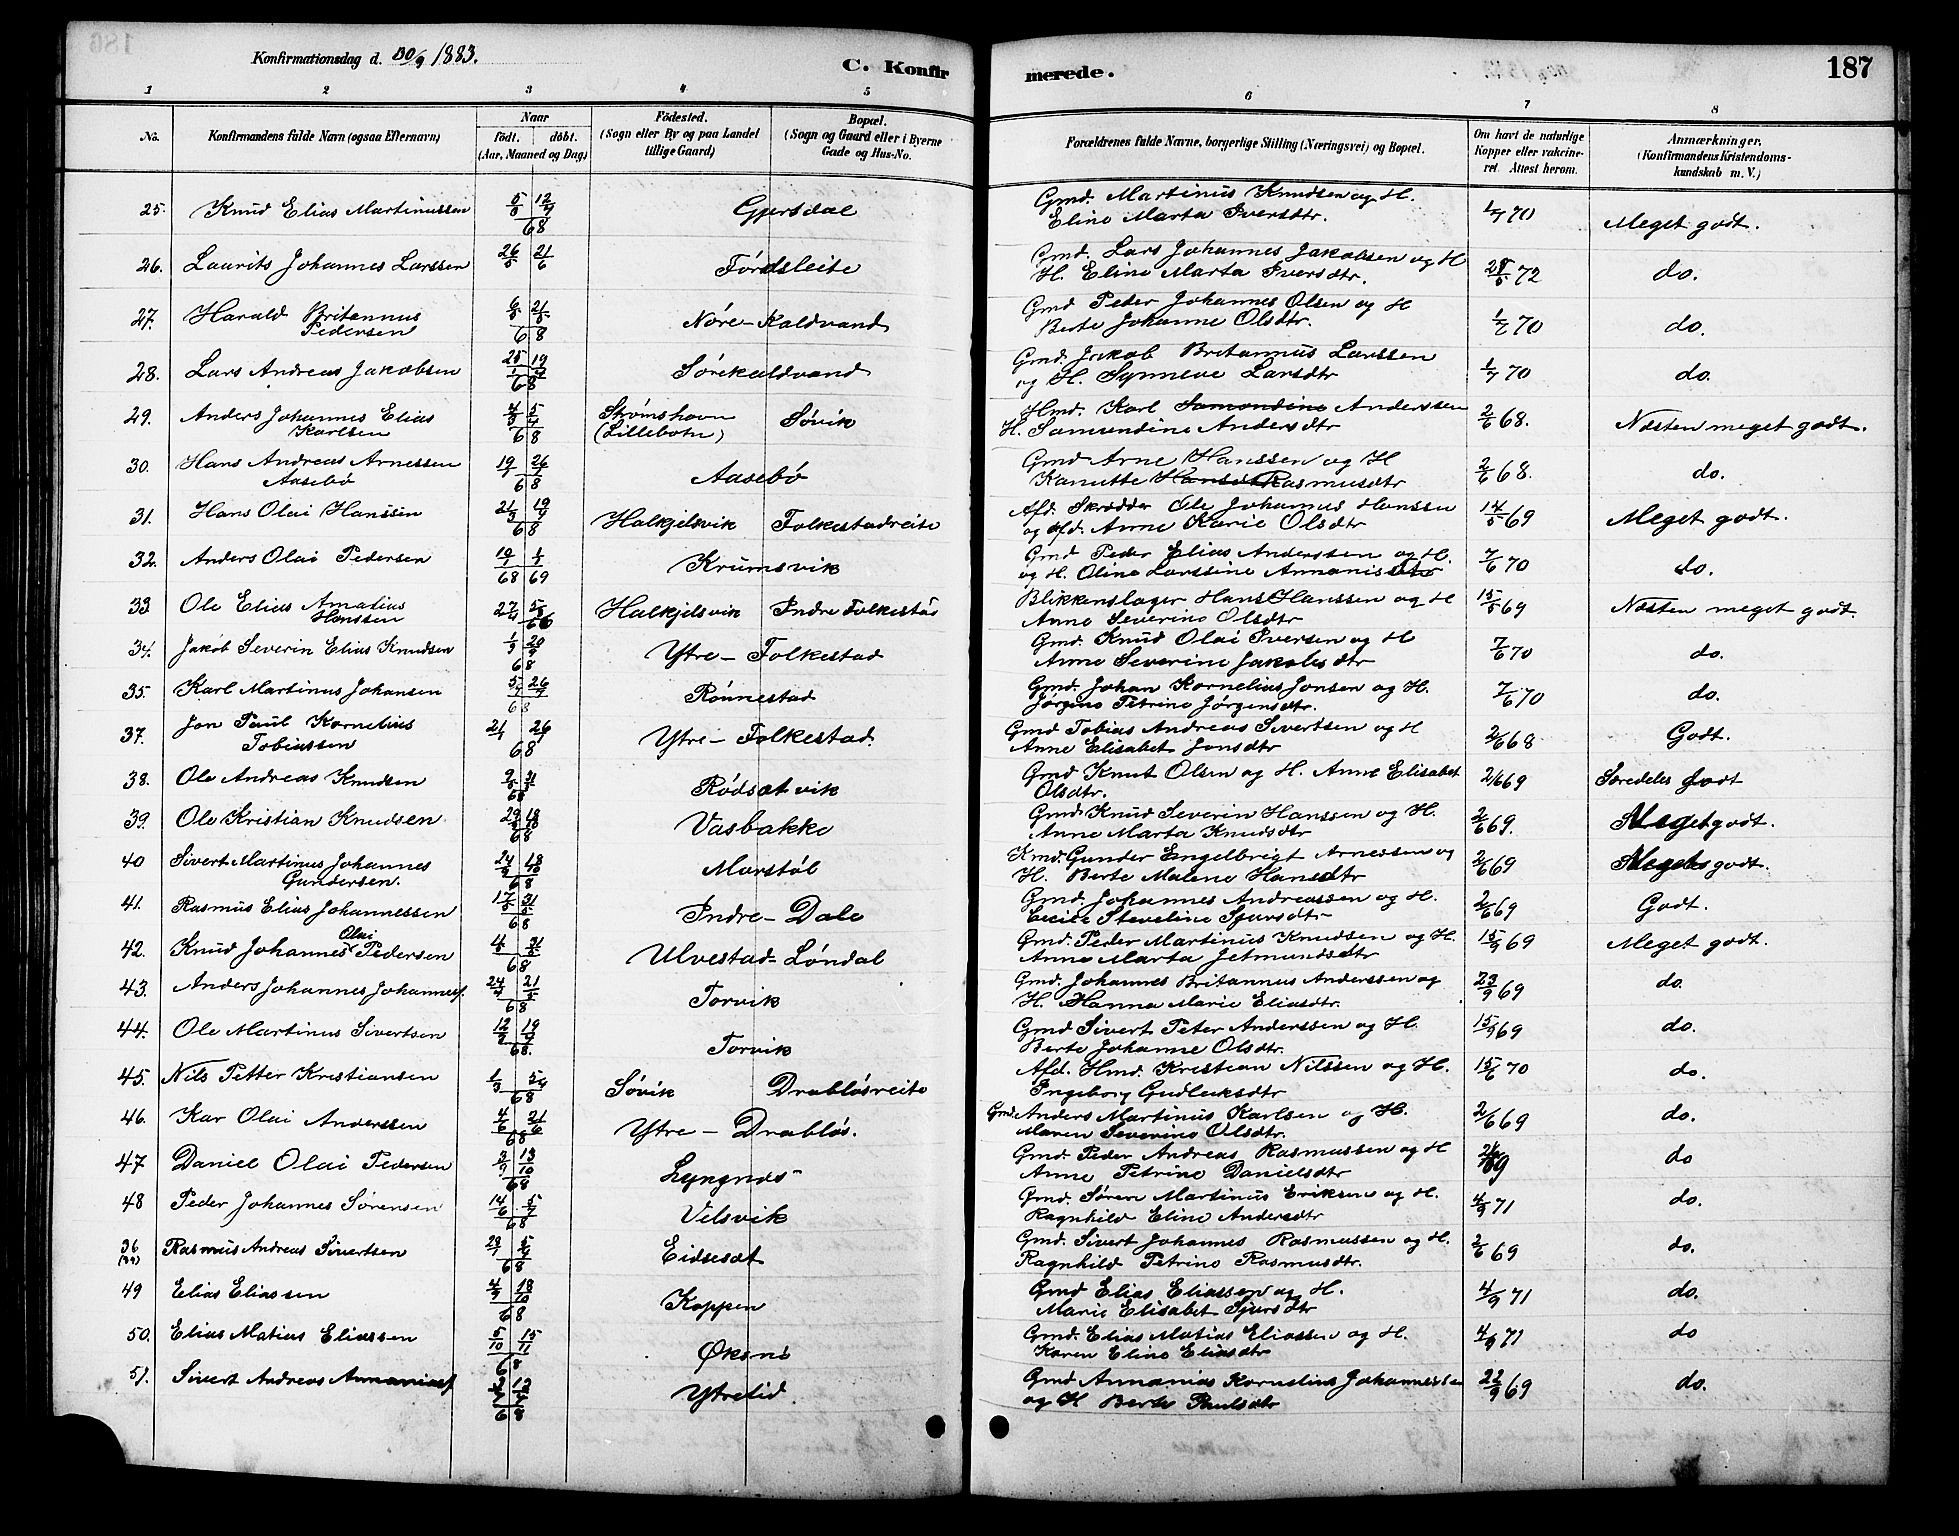 186
Konfirmationsdag d. 30/9 1883.
C. Konfirmerede.
187
1 2 3 4 5 6 7 8
No. Konfirmandens fulde Navn (ogsaa Efternavn)
Naar
født. døbt.
(Aar, Maaned og Dag)
Fødested.
(Sogn eller By og paa Landet
tillige Gaard)
Bopæl.
(Sogn og Gaard eller i Byerne
Gade og Hus-No.
Forældrenes fulde Navne, borgerlige Stilling (Næringsvei) og Bopæl.
Om havt de naturlige
Kopper eller vakcine-
ret. Attest herom.
Anmærkninger.
(Konfirmandens Kristendoms-
kundskab m. V.)
25. Knud Elias Martinussen 68 Gjersdal Gmd. Martinus Knudsen og H. 1/7 70 Meget godt.
Eline Marta Iversdtr.
26. Laurits Johannes Larssen 26/5 21/6 Førdsleite Gmd. Lars Johannes Jakobsen og H 72 do.
H. Eline Marta Iversdtr.
27. Harald Britannus 68 Nøre-Kaldvand Gmd Peder Johannes Olsen og H 70 do.
Pedersen Berte Johanne Olsdtr.
28. Lars Andreas Jakobsen 68 Sørekaldvand Gmd. Jakob Britannus Larssen 1/7 70 do.
og H. Synneve Larsdtr
29. Anders Johannes Elias 68 Strømshavn Søvik Hmd. Karl Samondine Anderssen 2/6 68. Næsten meget godt.
Karlsen (Lillebotn) H. Samundine Andersdtr
30. Hans Andreas Arnessen 68 Aasebø Gmd Arne Hanssen og H 2/6 68. do.
Aasebø Kanutte Hansdtr Rasmusdtr
31. Hans Olai Hanssen 68 Halkjelsvik Folkestadreite Afd. Skrædder Ole Johannes Hanssen 14/5 69 Meget godt.
og afd. Anne Karie Olsdtr
32. Anders Olai Pedersen 68 69 Krumsvik Gmd Peder Elias Anderssen og H. 7/6 70 do.
og H. Oline Larssine Annanisdtr
33. Ole Elias Amatius Halkjelsvik Indre Folkestad Blikkenslager Hans Hanssen og H 15/5 69 Næsten meget godt.
Hanssen Anne Severine Olsdtr
34. Jakob Severin Elias Knudsen 68 Ytre-Folkestad Gmd. Knud Olai Iversen og H 7/6 70 do.
Anne Severine Jakobsdtr
35. Karl Martinus Johansen 68 Rønnestad Gmd. Johan Kornelius Jonsen og H. 7/6 70 do.
Jørgine Petrine Jørgensdtr.
37. Jon Paul Kornelius 68 Ytre-Folkestad. Gmd Tobias Andreas Sivertsen og H 2/6 68 Godt.
Tobiassen Anne Elisabet Jonsdtr
38. Ole Andreas Knudsen 68 Rødsætvik Gmd Knut Olsen og H. Anne Elisabet 2/6 69 Særdeles godt
Olsdtr.
39. Ole Kristian Knudsen 68 Vasbakke Gmd. Knud Severin Hanssen og H. 2/6 69. Meget godt.
Anne Marta Knudsdtr
40 Sivert Martinus Johannes 68 Marstøl Kmd. Gunder Engelbrigt Arnessen og 2/6 69 Meget godt.
Gundersen. H. Berte Malene Hansdtr
41. Rasmus Elias Johannessen 68 Indre-Dale Gmd. Johannes Andreassen og H. 2/6 69 Godt.
Cecilie Steveline Sjursdtr
42. Knud Johannes Olai Pedersen 68 Ulvestad-Løndal Gmd. Peder Martinus Knudsen og H. 15/9 69 Meget godt.
Anne Marta Jetmundsdtr
43. Anders Johannes Johannesf. 68 Torvik Gmd. Johannes Britannus Anderssen og 23/9 69 do.
H. Hanna Marie Eliasdtr.
44. Ole Martinus Sivertsen 68. Torvik Gmd Sivert Peter Anderssen og H. 15/9 69 do.
Berte Johanne Olsdtr.
45. Nils Petter Kristiansen 68 Søvik Drabløsreite Afd. Hmd. Kristian Nilssen og H. 15/6 70 do.
Ingeborg Gudleiksdtr
46. Kar Olai Anderssen 68 Ytre-Drabløs. Gmd. Anders Martinus Karlsen og H. 2/6 69 do.
Maren Severine Olsdtr.
47 Daniel Olai Pedersen 3/9 13/10 68 Lyngnes Gmd. Peder Andreas Rasmussen og H 69 do
Anne Petrine Danielsdtr
48 Peder Johannes Sørensen 14/6 5/7 68 Velsvik Gmd. Søren Martinus Eriksen og H. 4/9 71 do.
Ragnhild Eline Andersdtr
36 Rasmus Andreas Sivertsen 68 Eidsesæt Gmd. Sivert Johannes Rasmussen og H. 2/6 69 do.
Ragnhild Petrine Rasmusdtr.
49 Elias Eliassen 4/9 18/10 68 Koppen Gmd Elias Eliassen og H. 4/9 71 do.
Marie Elisabet Sjursdtr
50. Elias Matias Eliassen 5/10 15/11 68 Øksnø Gmd. Elias Matias Eliassen og H. 4/9 71 do
Karen Eline Eliasdtr
51. Sivert Andreas Annaniasf. 68 Ytretid. Gmd Annanias Kornelius Johannessen 22/9 69 do.
og H Berte Paulsdtr